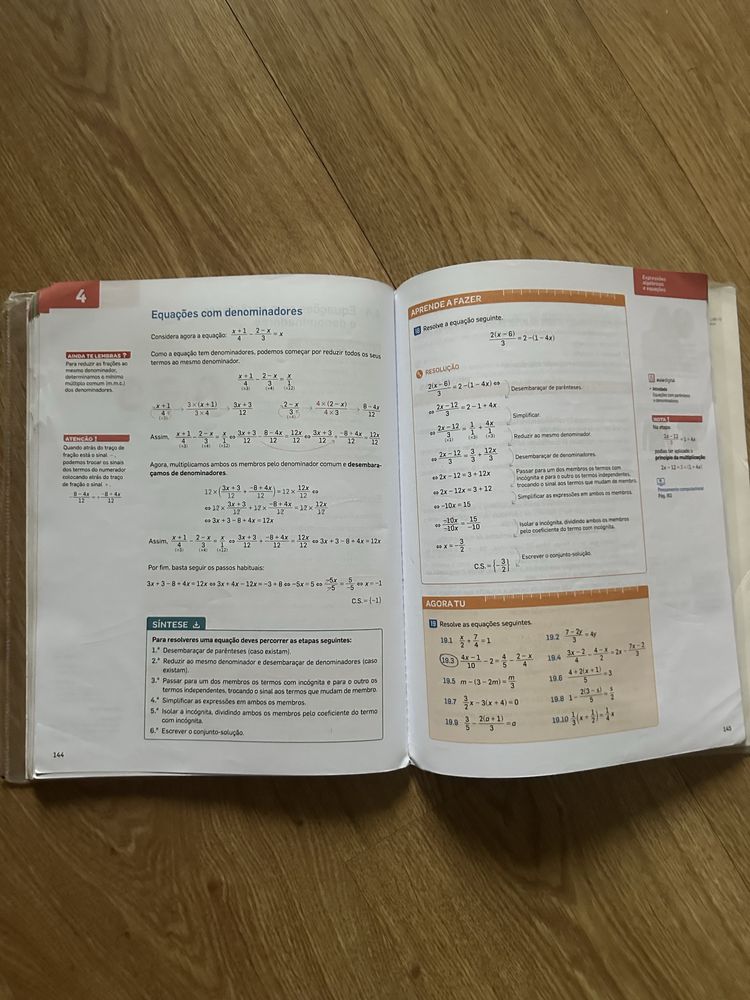 4
Equações com denominadores
Considera agora a equação: (x+1)/4 − (2−x)/3 = x
AINDA TE LEMBRAS ?
Para reduzir as frações ao
mesmo denominador,
determinamos o mínimo
múltiplo comum (m.m.c.)
dos denominadores.
Como a equação tem denominadores, podemos começar por reduzir todos os seus
termos ao mesmo denominador.
(x+1)/4 (×3) − (2−x)/3 (×4) = x/1 (×12)
(x+1)/4 (×3) → (3×(x+1))/(3×4) → (3x+3)/12
(2−x)/3 (×4) → (4×(2−x))/(4×3) → (8−4x)/12
ATENÇÃO !
Quando atrás do traço de
fração está o sinal −,
podemos trocar os sinais
dos termos do numerador
colocando atrás do traço
de fração o sinal +.
− (8−4x)/12 = + (−8+4x)/12
Assim, (x+1)/4 (×3) − (2−x)/3 (×4) = x/1 (×12) ⇔ (3x+3)/12 − (8−4x)/12 = 12x/12 ⇔ (3x+3)/12 + (−8+4x)/12 = 12x/12
Agora, multiplicamos ambos os membros pelo denominador comum e desembara-
çamos de denominadores.
12×((3x+3)/12 + (−8+4x)/12) = 12×12x/12 ⇔
⇔ 12×(3x+3)/12 + 12×(−8+4x)/12 = 12×12x/12
⇔ 3x+3−8+4x = 12x
Assim, (x+1)/4 (×3) − (2−x)/3 (×4) = x/1 (×12) ⇔ (3x+3)/12 + (−8+4x)/12 = 12x/12 ⇔ 3x+3−8+4x = 12x
Por fim, basta seguir os passos habituais:
3x+3−8+4x = 12x ⇔ 3x+4x−12x = −3+8 ⇔ −5x = 5 ⇔ −5x/−5 = 5/−5 ⇔ x = −1
C.S. = {−1}
SÍNTESE
Para resolveres uma equação deves percorrer as etapas seguintes:
1.ª Desembaraçar de parênteses (caso existam).
2.ª Reduzir ao mesmo denominador e desembaraçar de denominadores (caso
existam).
3.ª Passar para um dos membros os termos com incógnita e para o outro os
termos independentes, trocando o sinal aos termos que mudam de membro.
4.ª Simplificar as expressões em ambos os membros.
5.ª Isolar a incógnita, dividindo ambos os membros pelo coeficiente do termo
com incógnita.
6.ª Escrever o conjunto-solução.
144
Expressões
algébricas
e equações
APRENDE A FAZER
18 Resolve a equação seguinte.
2(x−6)/3 = 2−(1−4x)
RESOLUÇÃO
2(x−6)/3 = 2−(1−4x) ⇔
Desembaraçar de parênteses.
⇔ (2x−12)/3 = 2−1+4x
Simplificar.
⇔ (2x−12)/3 (×1) = 1/1 (×3) + 4x/1 (×3)
Reduzir ao mesmo denominador.
⇔ (2x−12)/3 = 3/3 + 12x/3
Desembaraçar de denominadores.
⇔ 2x−12 = 3+12x
Passar para um dos membros os termos com
incógnita e para o outro os termos independentes,
trocando o sinal aos termos que mudam de membro.
⇔ 2x−12x = 3+12
Simplificar as expressões em ambos os membros.
⇔ −10x = 15
⇔ −10x/−10x = 15/−10
Isolar a incógnita, dividindo ambos os membros
pelo coeficiente do termo com incógnita.
⇔ x = −3/2
Escrever o conjunto-solução.
C.S. = {−3/2}
auladigital
Atividade
Equações com parênteses
e denominadores
NOTA !
Na etapa
(2x−12)/3 = 1+4x
podias ter aplicado o
princípio da multiplicação
2x−12 = 3×(1+4x)
Pensamento computacional
AGORA TU
19 Resolve as equações seguintes.
19.1 x/2 + 7/4 = 1
19.2 (7−2y)/3 = 4y
19.3 (4x−1)/10 − 2 = 4/5 − (2−x)/4
19.4 (3x−2)/4 − (4−x)/2 = 2x − (7x−2)/3
19.5 m−(3−2m) = m/3
19.6 (4+2(x+1))/5 = 3
19.7 3/2 x−3(x+4) = 0
19.8 1 − 2(3−s)/5 = s/2
19.9 3/5 − 2(a+1)/3 = a
19.10 1/3 (x + 1/2) = 1/4 x
145